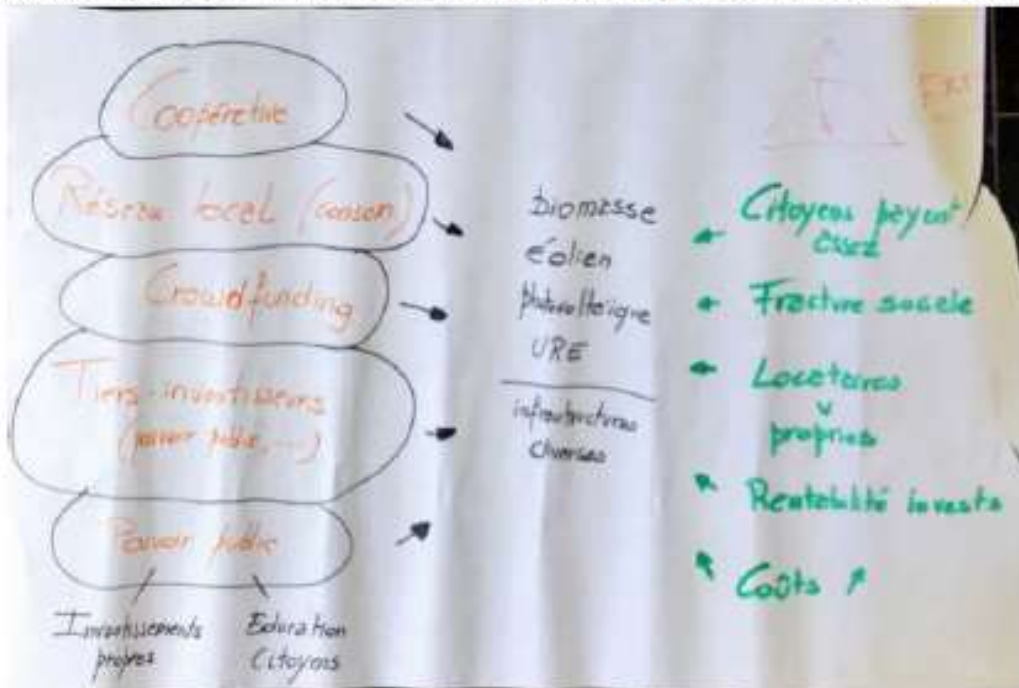 Coopérative
Réseau local (consom)
Crowdfunding
Tiers-investisseurs
(pouvoir public, ...)
Pouvoir public
Investissements
propres
Education
Citoyens
biomasse
éolien
photovoltaïque
URE
infrastructures
diverses
Citoyens payent
assez
Fracture sociale
Locataires
v
proprios
Rentabilité invests
Coûts ↗